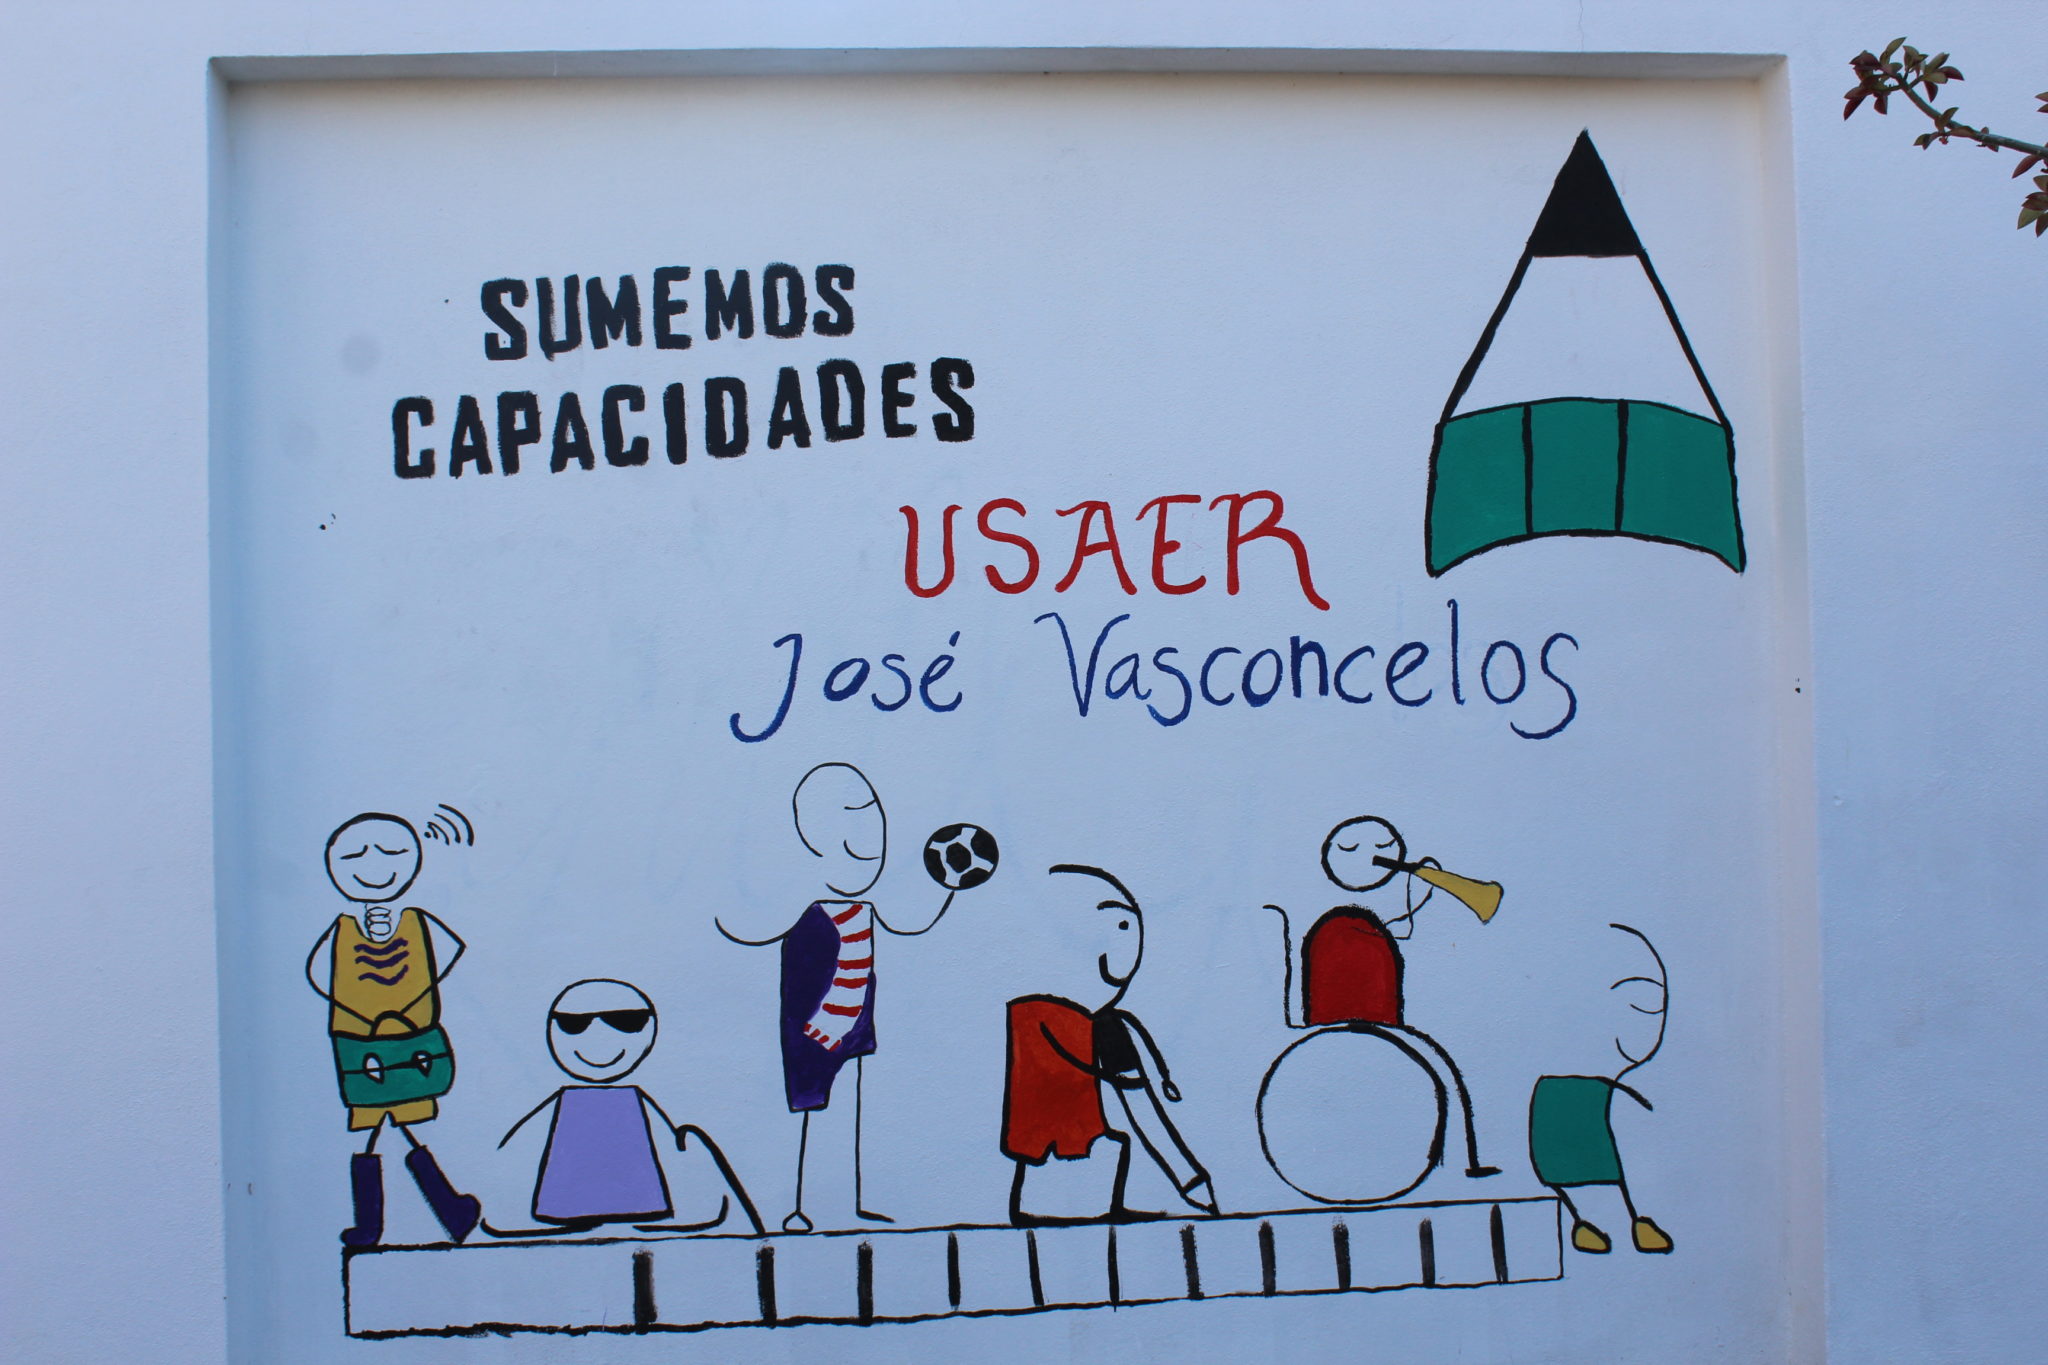 SUMEMOS
CAPACIDADES
USAER
José Vasconcelos